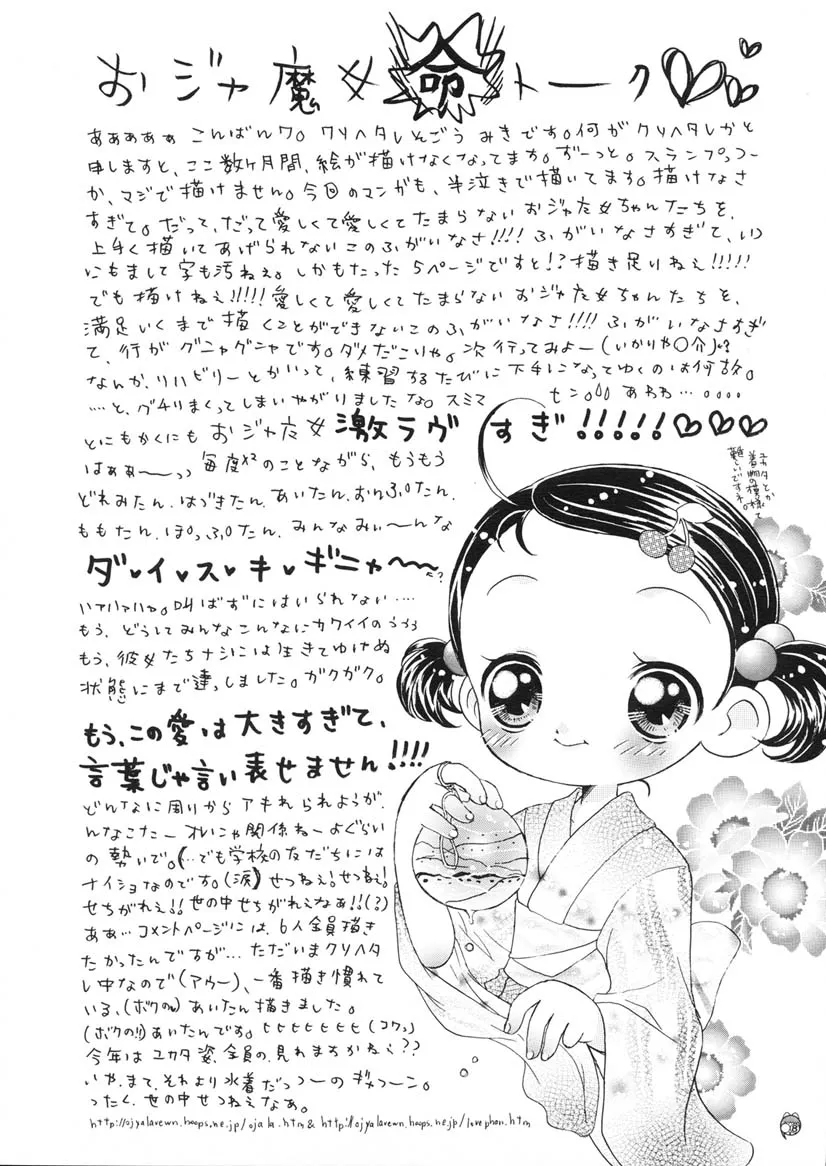 おジャ魔女命トーク
ああああぁ こんばんワ。クリヘタレんごう みきです。何がクリヘタレかと
申しますと、ここ数ヶ月間、絵が描けなくなってます。ずーっと。スランプっつー
か、マジで描けません。今回のマンガも、半泣きで描いてます。描けなさ
すぎて。だって、だって愛しくて愛しくてたまらない おジャ魔女ちゃんたちを、
上手く描いてあげられないこのふがいなさ!!!! ふがいなさすぎて、いつ
にもまして字も汚ねぇ。しかもたった5ページですと!? 描き足りねぇ!!!!!
でも描けねぇ!!!!! 愛しくて愛しくてたまらない おジャ魔女ちゃんたちを、
満足いくまで描くことができないこのふがいなさ!!!! ふがいなさすぎ
て、行がグニャグニャです。ダメだこりゃ。次行ってみよー(いかりや〇介)!?
なんか、リハビリーとかいって、練習するたびに下手になってゆくのは何故。
……と、グチりまくってしまいやがりましたな。スミマセン。あわわ…。。。。
とにもかくにも おジャ魔女 激ラヴすぎ!!!!!
ユカタとか
着物の模様って
難しいですネ。
はぁぁ〜〜っっ 毎度のことながら、もうもう
どれみたん、はづきたん、あいたん、おんぷたん、
ももたん、ぽっぷたん、みんなみぃ〜んな
ダ・イ・ス・キ・ギニャ〜〜
ハァハァハァ。叫ばずにはいられない……
もう、どうしてみんなこんなにカワイイのううう
もう、彼女たちナシには生きてゆけぬ
状態にまで達っしました。ガクガク。
もう、この愛は大きすぎて、
言葉じゃ言い表せません!!!!
どんなに周りからアキれられようが、
んなこたー オレにゃ関係ねーよぐらい
の勢いで。(…でも学校の友だちには
ナイショなのです。(涙)) せつねぇ!せつねぇ!
せちがれぇ!! 世の中せちがれぇなぁ!!(?)
ああ… コメントページには、6人全員描き
たかったんですが… ただいまクリヘタ
レ中なので(アウー)、一番描き慣れて
いる、(ボクの)あいたん描きました。
(ボクの!!)あいたんです。ヒヒヒヒヒヒヒ(コワっ)
今年はユカタ姿、全員の、見れますかねぇ??
いや、まて、それより水着だっつーのギャフーン。
ったく、世の中せつねぇなぁ。
http://ojyalavewn.hoops.ne.jp/ojala.htm & http://ojyalavewn.hoops.ne.jp/lovephan.htm